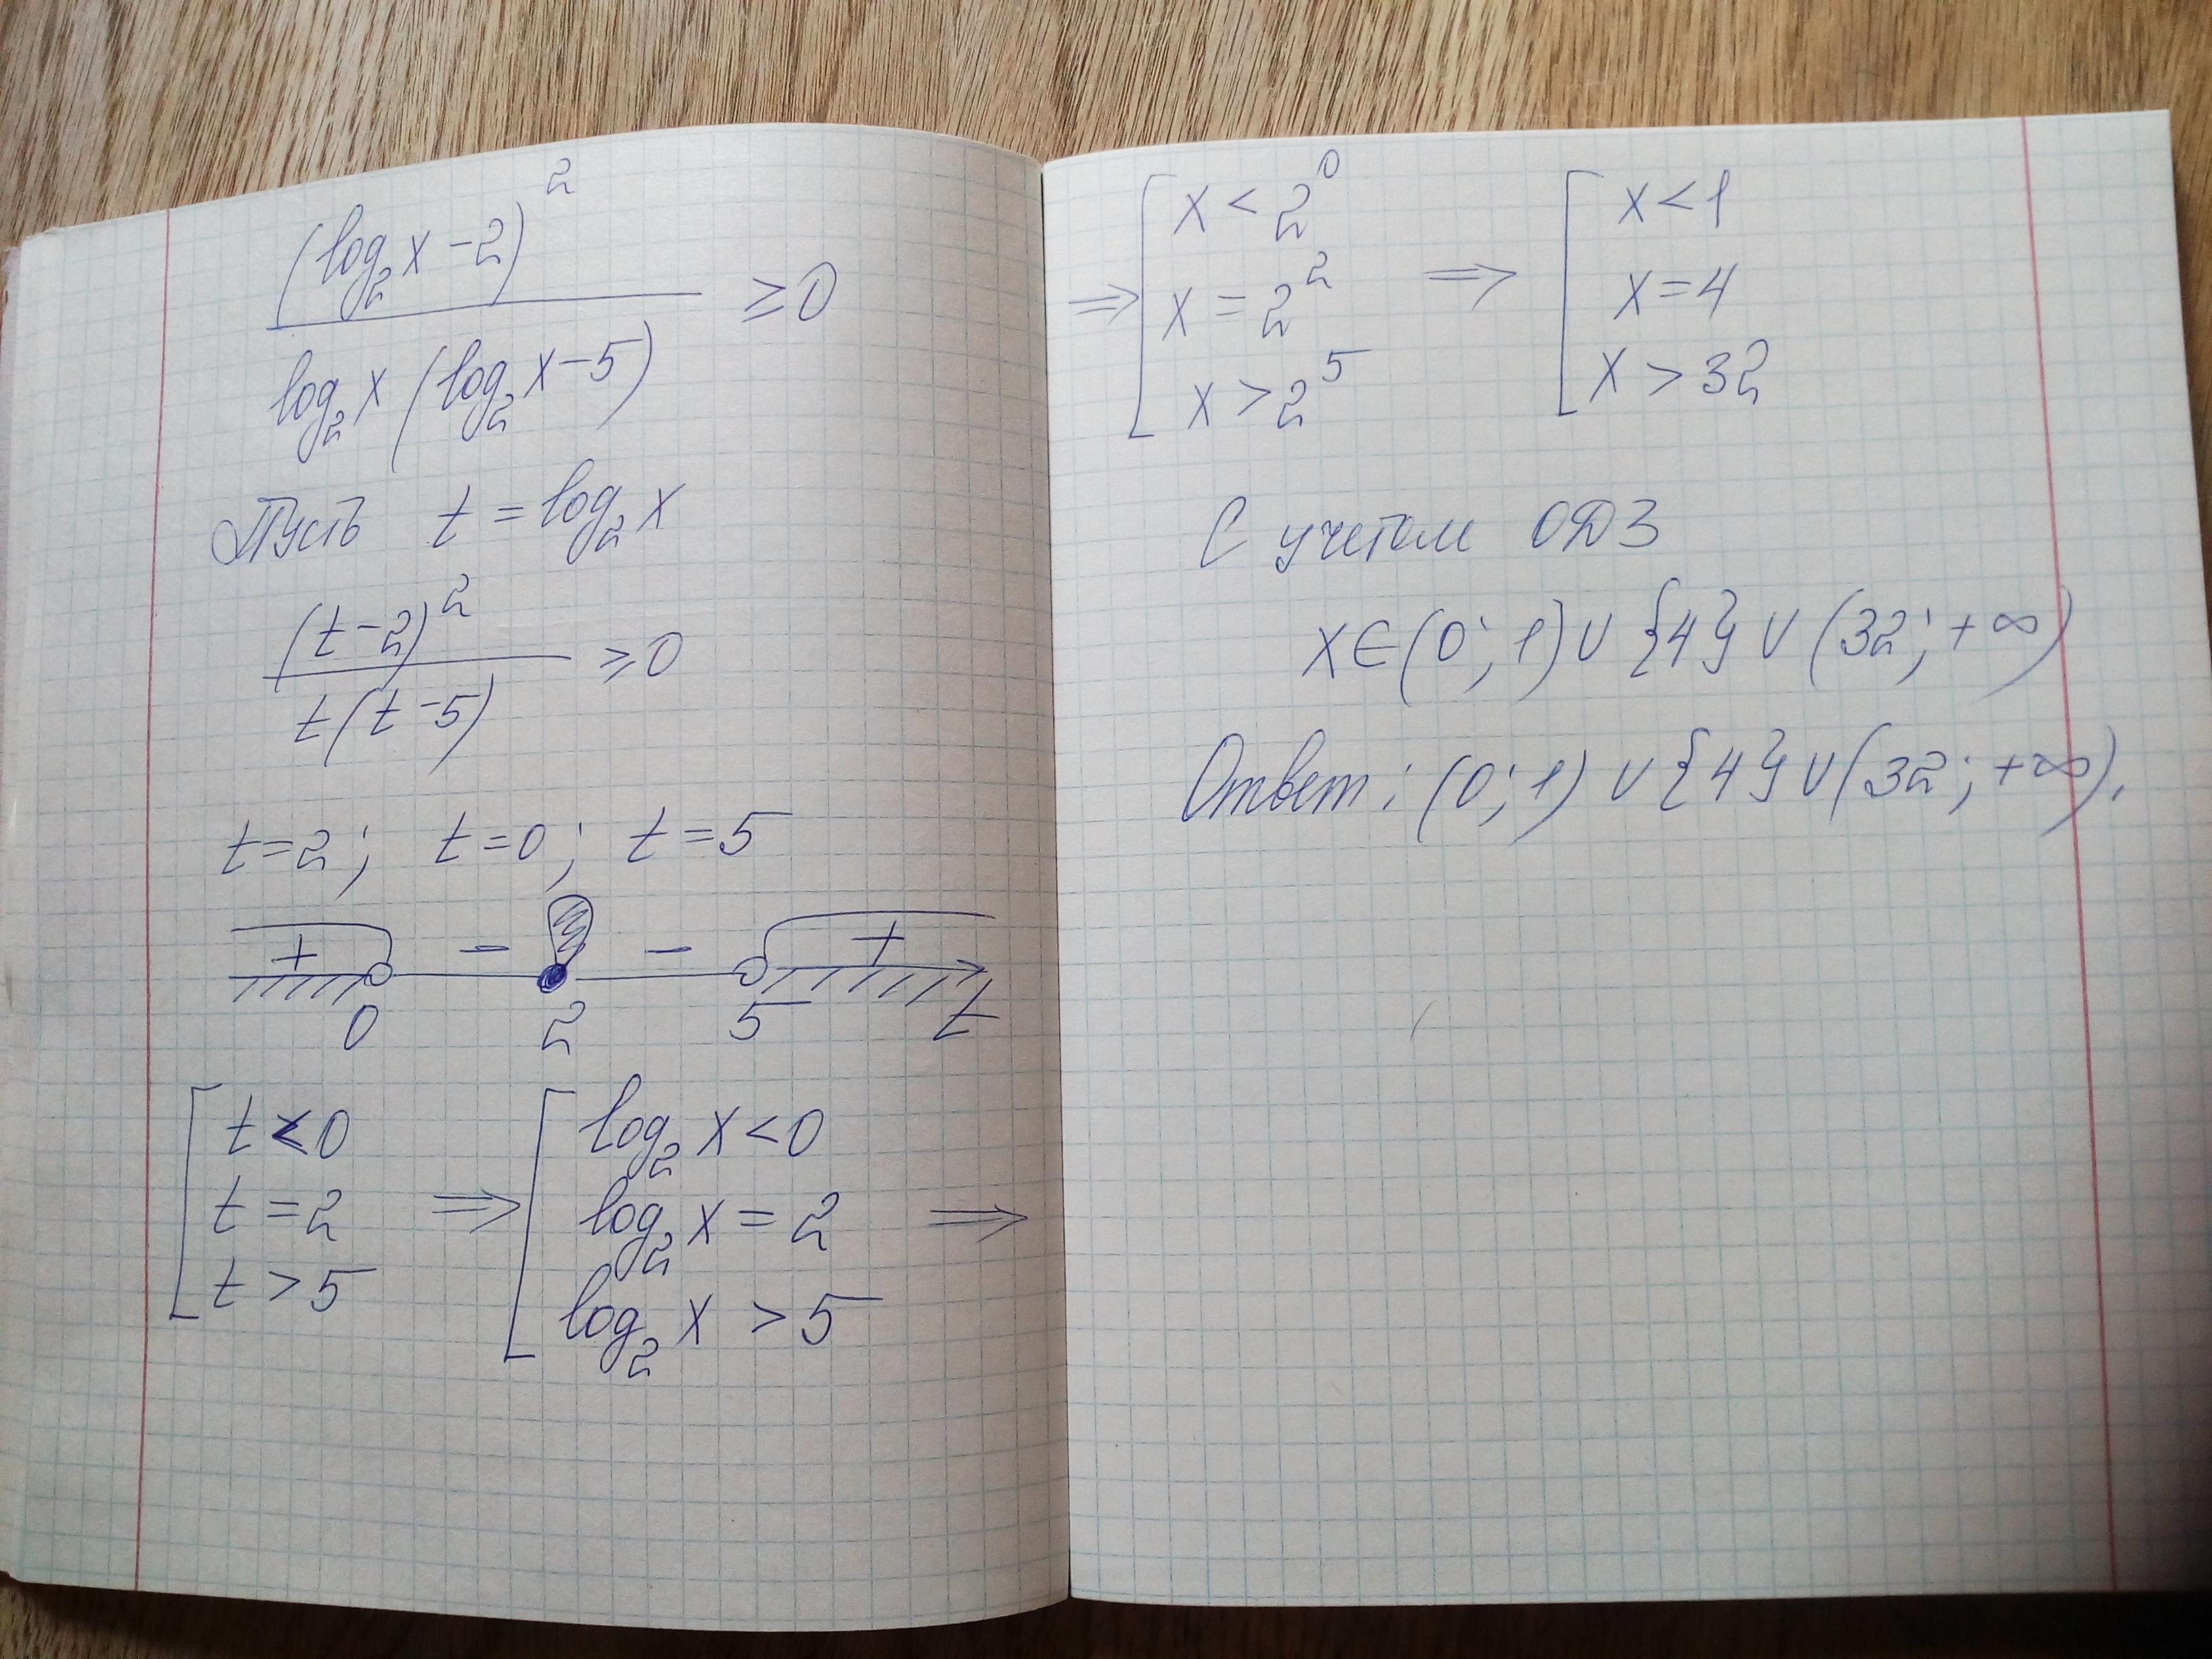 (log₂x − 2)²
/ log₂x (log₂x − 5) ≥ 0
Пусть t = log₂x
(t − 2)²
/ t(t − 5) ≥ 0
t = 2; t = 0; t = 5
+ − − +
0 2 5 t
[ t < 0 ⇒ [ log₂x < 0
t = 2 log₂x = 2 ⇒
t > 5 log₂x > 5
⇒ [ x < 2⁰ ⇒ [ x < 1
x = 2² x = 4
x > 2⁵ x > 32
С учетом ОДЗ
x ∈ (0; 1) ∪ {4} ∪ (32; +∞)
Ответ: (0; 1) ∪ {4} ∪ (32; +∞).